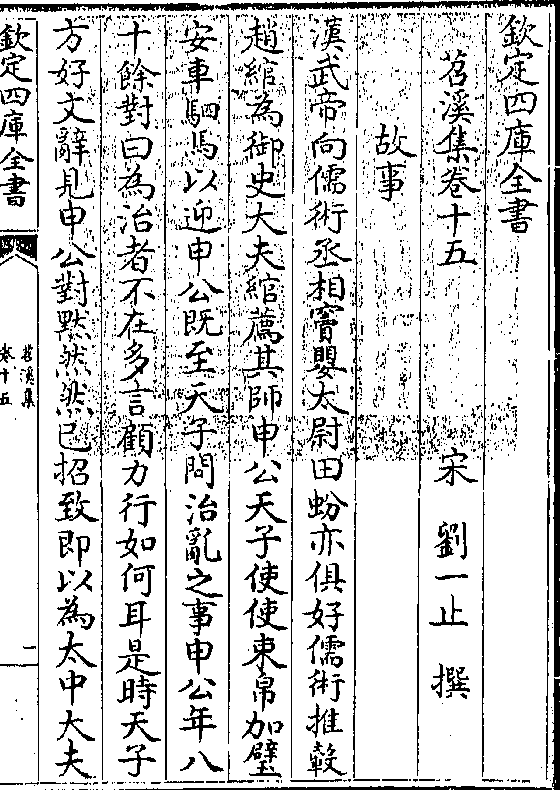 欽定四庫全書
苕溪集卷十五　宋　劉一止　撰
故事
漢武帝向儒術丞相竇嬰太尉田蚡亦俱好儒術推轂
趙綰為御史大夫綰薦其師申公天子使使束帛加璧
安車駟馬以迎申公既至天子問治亂之事申公年八
十餘對曰為治者不在多言顧力行如何耳是時天子
方好文辭見申公對默然然已招致即以為太中大夫
欽定四庫全書
苕溪集
卷十五
一